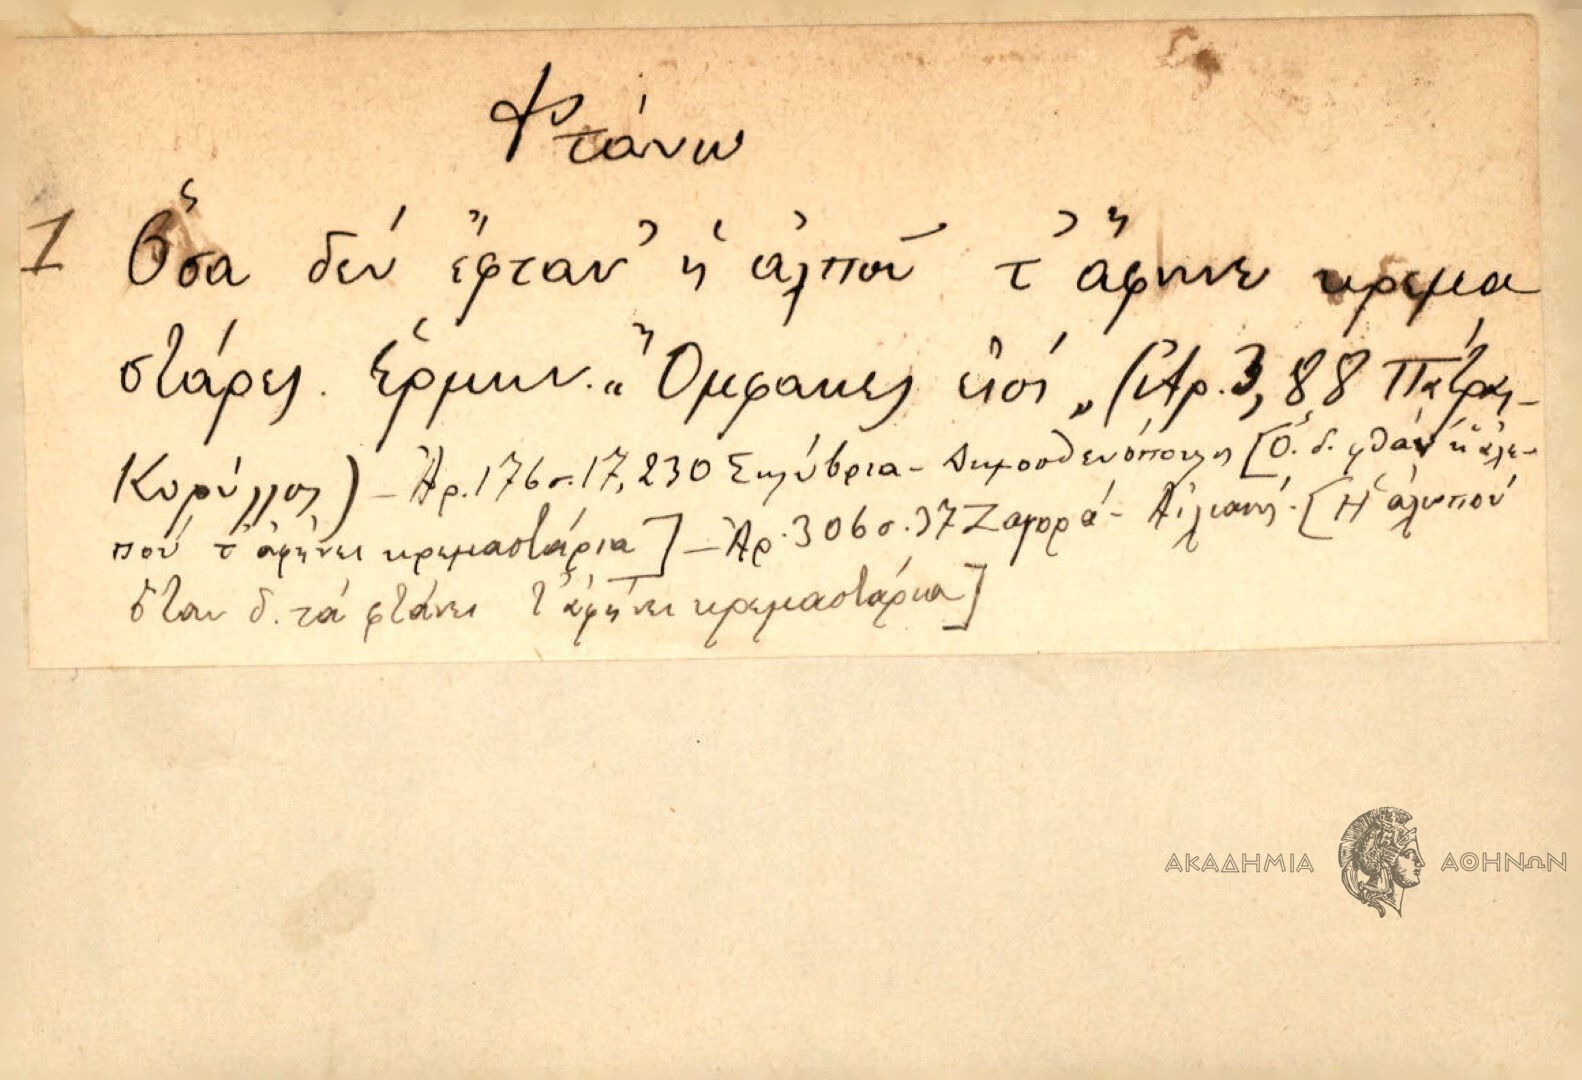 Φτάνω
1 Ὅσα δέν ἔφταν' ἡ ἀλποῦ τ' ἄφηνε κρεμα
στάρες. Ἑρμην. "Ὄμφακες εἰσί" (Ἀρ. 3, 88 Πάτραι-
Κορύλλος) - Ἀρ. 176 σ. 17, 230 Σηλύβρια - Δημοσθενόπουλος [Ὅ. δ. φθάν' ἡ ἀλε-
πού τ' ἀφήνει κρεμαστάρια] - Ἀρ. 306 σ. 37 Ζαγορά - Αἰλιανή. [Ἡ ἀλεπού
ὅταν δ. τά φτάνει τ' ἀφήνει κρεμαστάρια]
ΑΚΑΔΗΜΙΑ ΑΘΗΝΩΝ